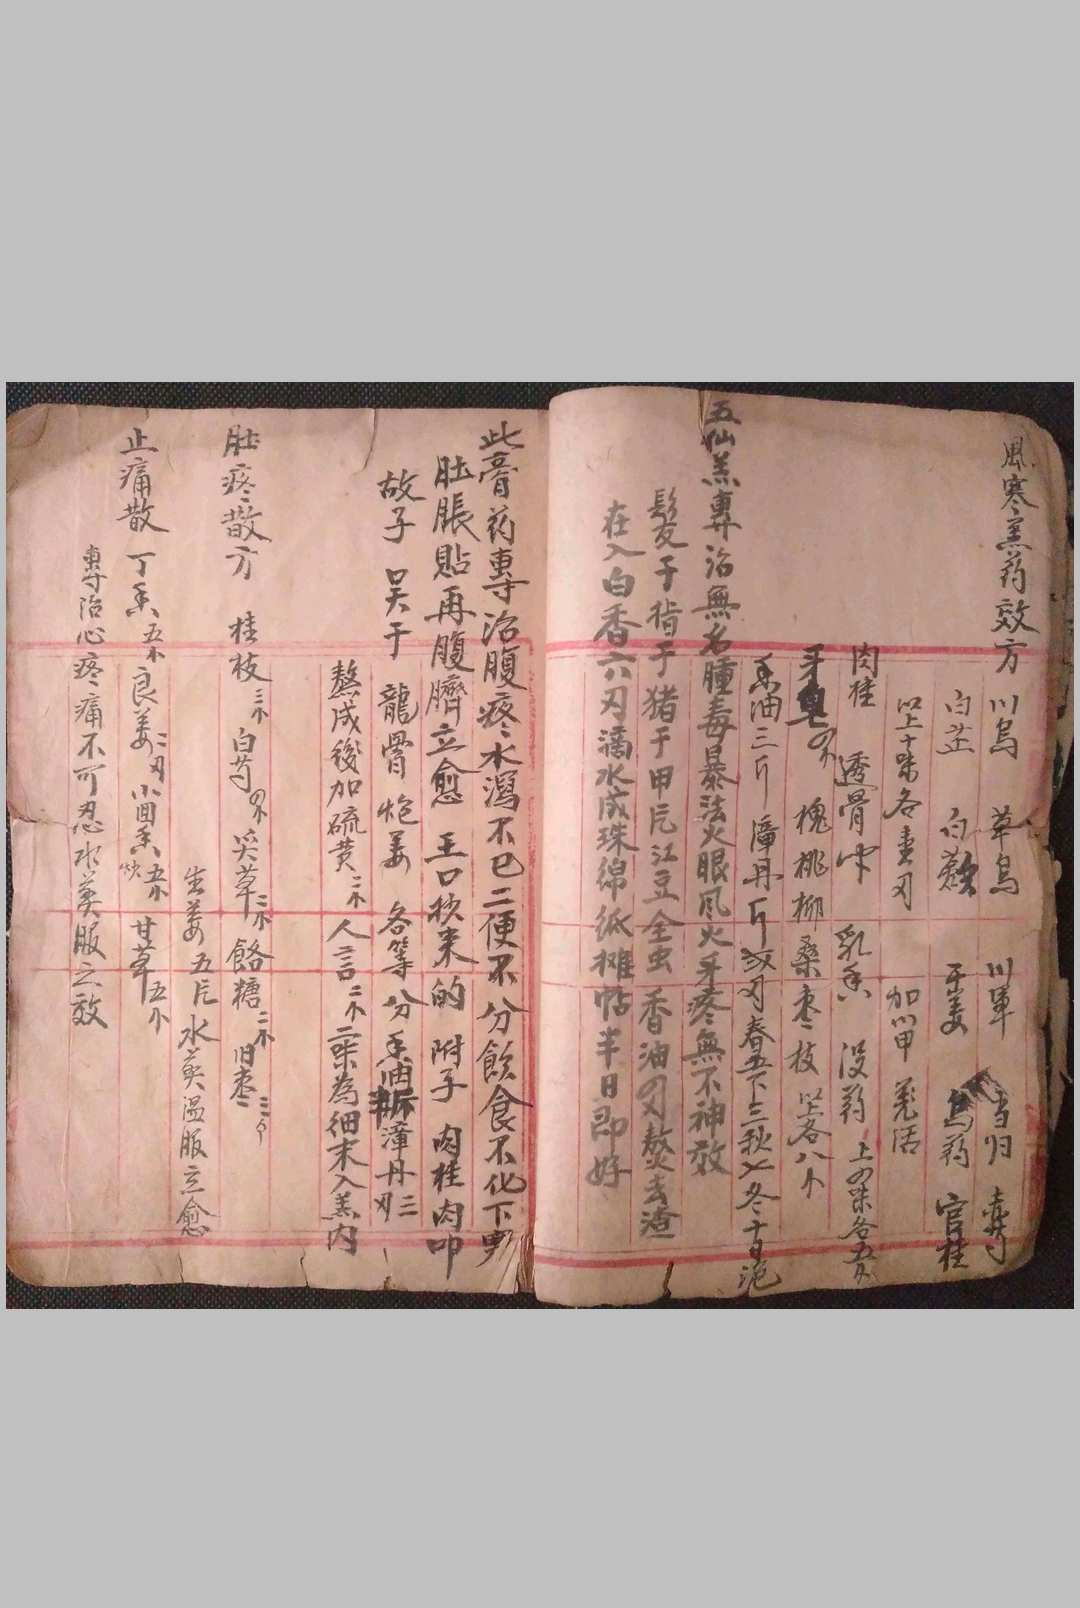 風寒羔药效方 川烏 草烏 川軍 当归 赤芍
白芷 白蘞 干姜 烏药 官桂
以上十味各壹刃 加川甲 羌活
肉桂 透骨草 乳香 没药 上四味各五刄
牙皂 槐桃柳桑枣枝 以上各八小
香油三斤 漳丹一斤 春五下三秋七冬十日泡
五仙羔專治無名腫毒暴法火眼风火牙疼無不神效
髮子指子猪子甲片江豆全虫 香油四刃熬去渣
在入白香六刃滴水成珠綿紙摊帖半日即好
此膏药專治腹疼水瀉不已二便不分飲食不化下
肚脹貼再腹臍立愈 王口抄来的 附子 肉桂 肉叩
故子 吴于 龍骨 炮姜 各等分 香油 漳丹三刃
熬成後加硫黄二小 人言二小 二味為細末入羔内
肚疼散方 桂枝三小 白芍四小 炙草二小 餎糖二小 旧枣三个
生姜五片 水煎温服立愈
止痛散 丁香五小 良姜二刃 小茴香五小 炒 甘草五小
專治心疼痛不可忍水煎服之效